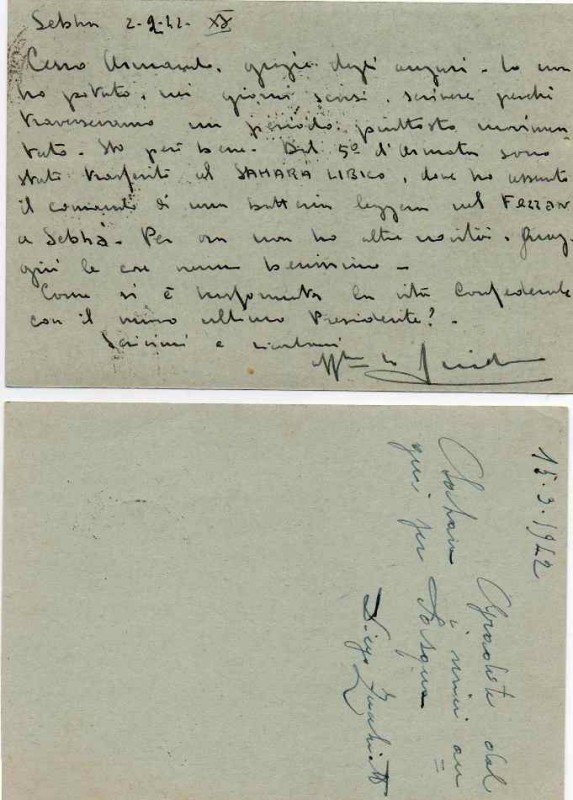 Sebha 2-9-42- XX
Caro Armando, grazie degli auguri - Io non
ho potuto, nei giorni scorsi, scrivere perché
traversavamo un periodo piuttosto movimen-
tato - Sto però bene - Dal 5º d'Armata sono
stato trasferito al SAHARA LIBICO, dove ho assunto
il comando di una batteria leggera nel FEZZAN
a Sebhà - Per ora non ho altre novità. Quag-
giù le cose vanno benissimo -
Come si è trasformata la vita Confederale
con il nuovo ultimo Presidente? -
Scrivimi e ricordami
15.3.1942
Gradite dal
Sahara i miei au
guri per Pasqua
Diego